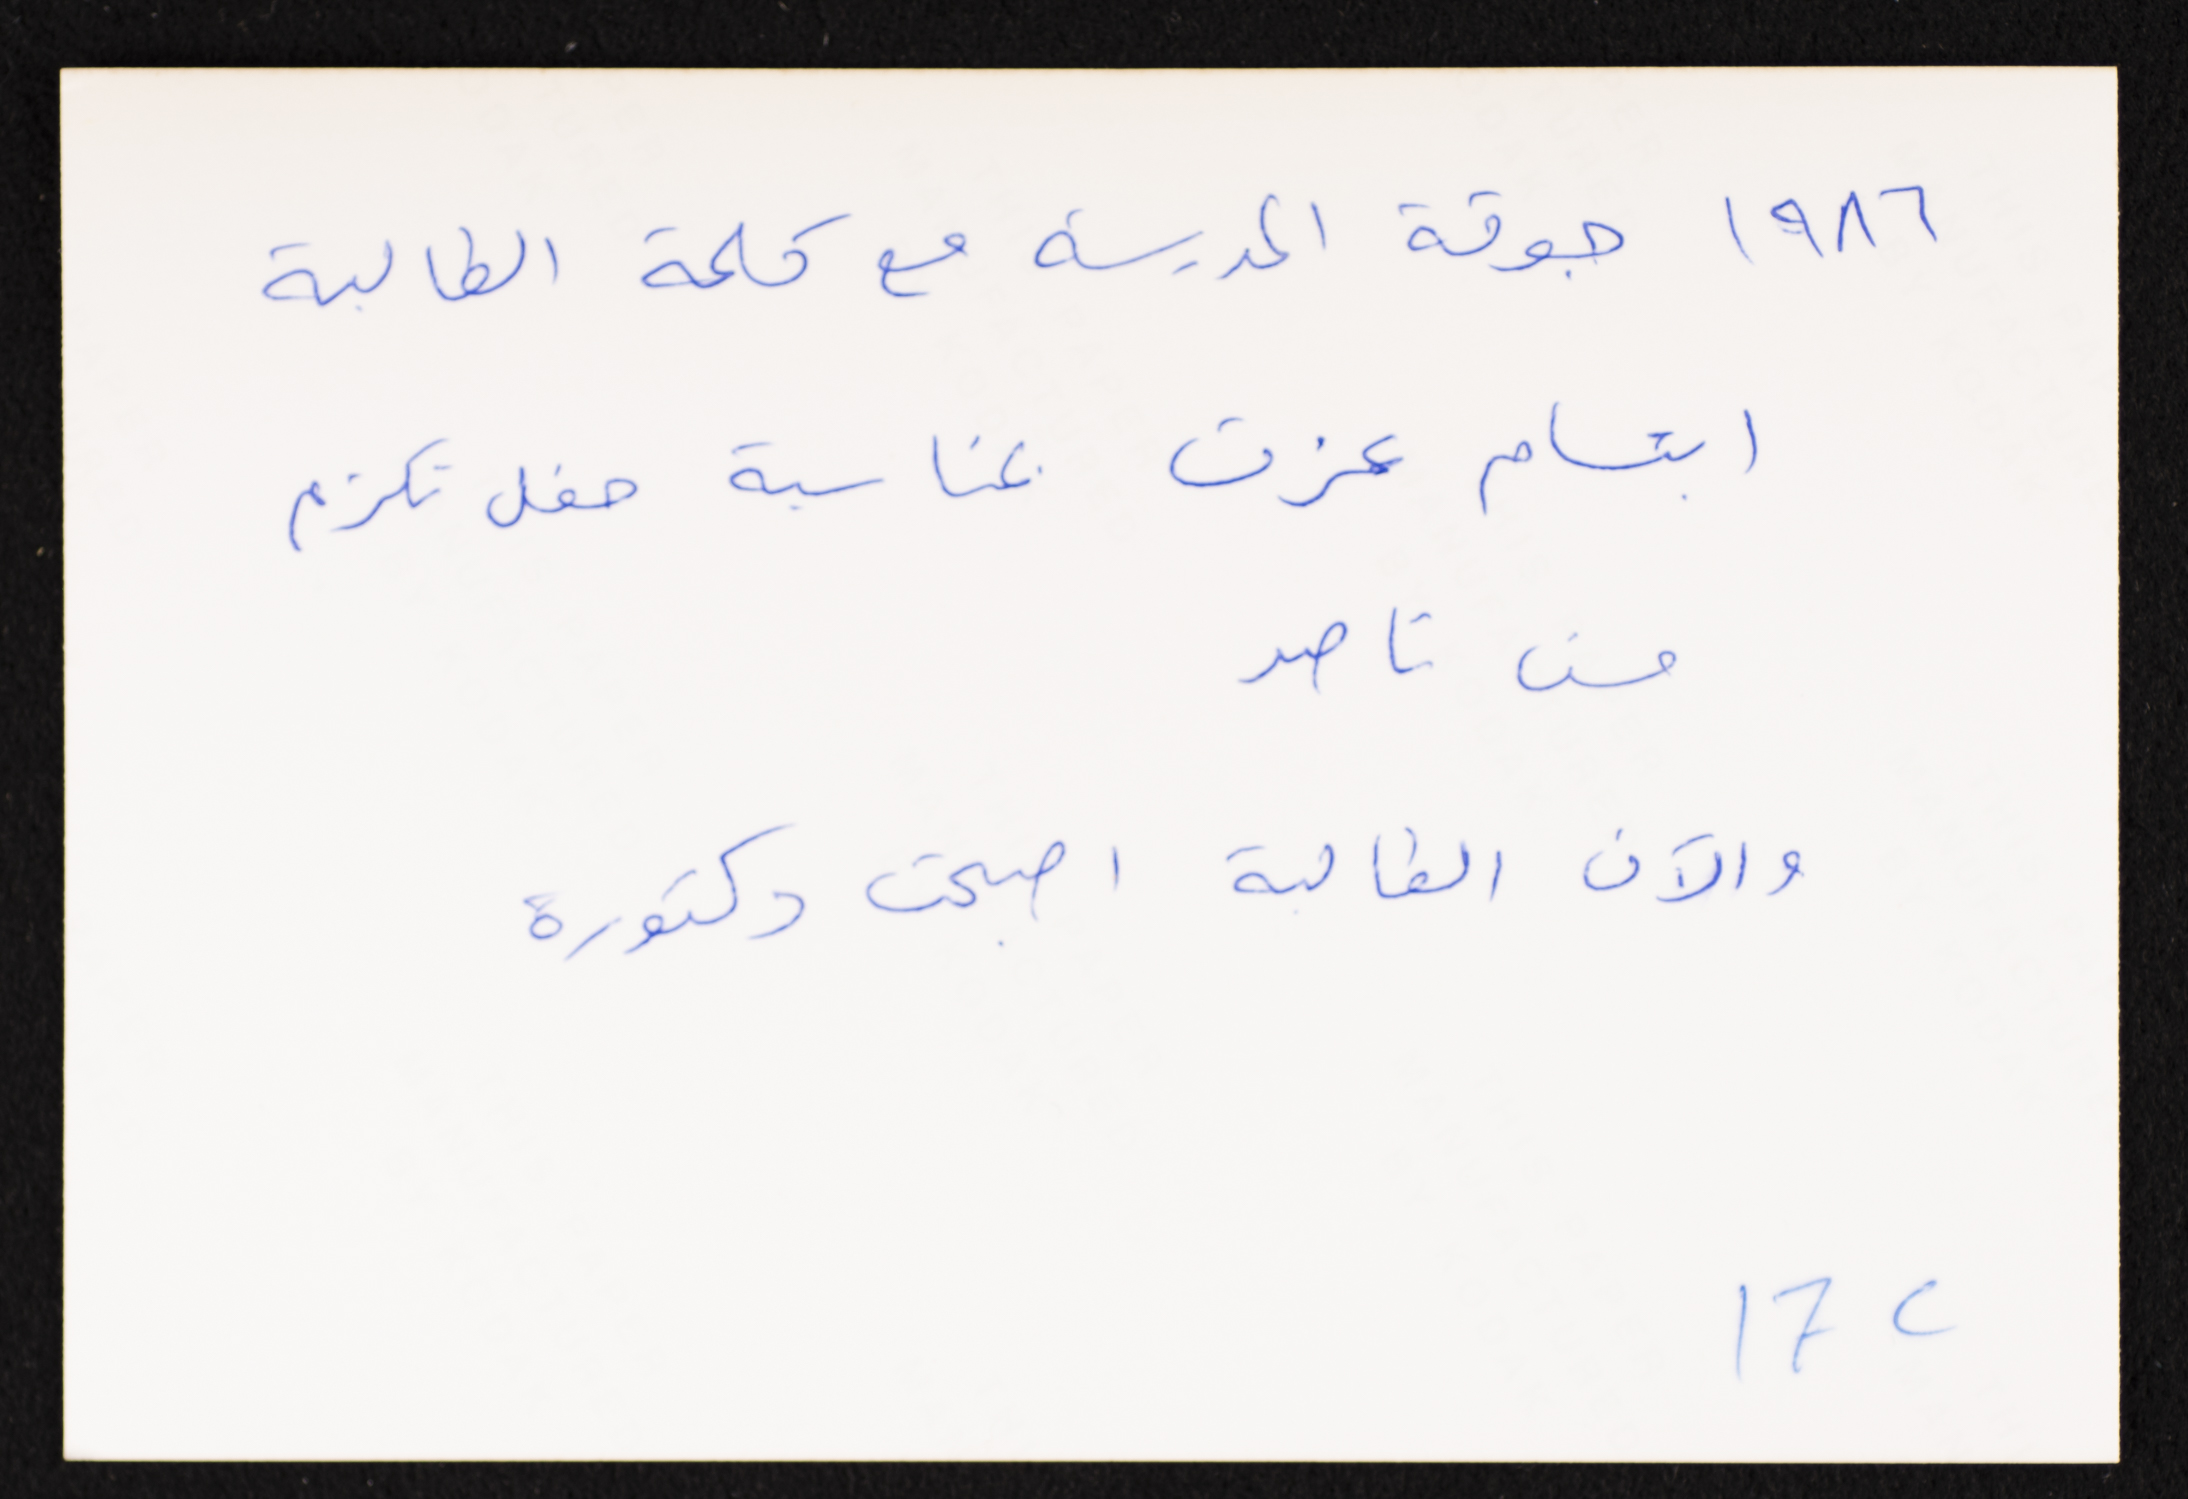 ١٩٨٦ جوقة المدرسة مع كلمة الطالبة
ابتسام عزت بمناسبة حفل تكريم
مسن ناصر
والآن الطالبة اصبحت دكتورة
17 c